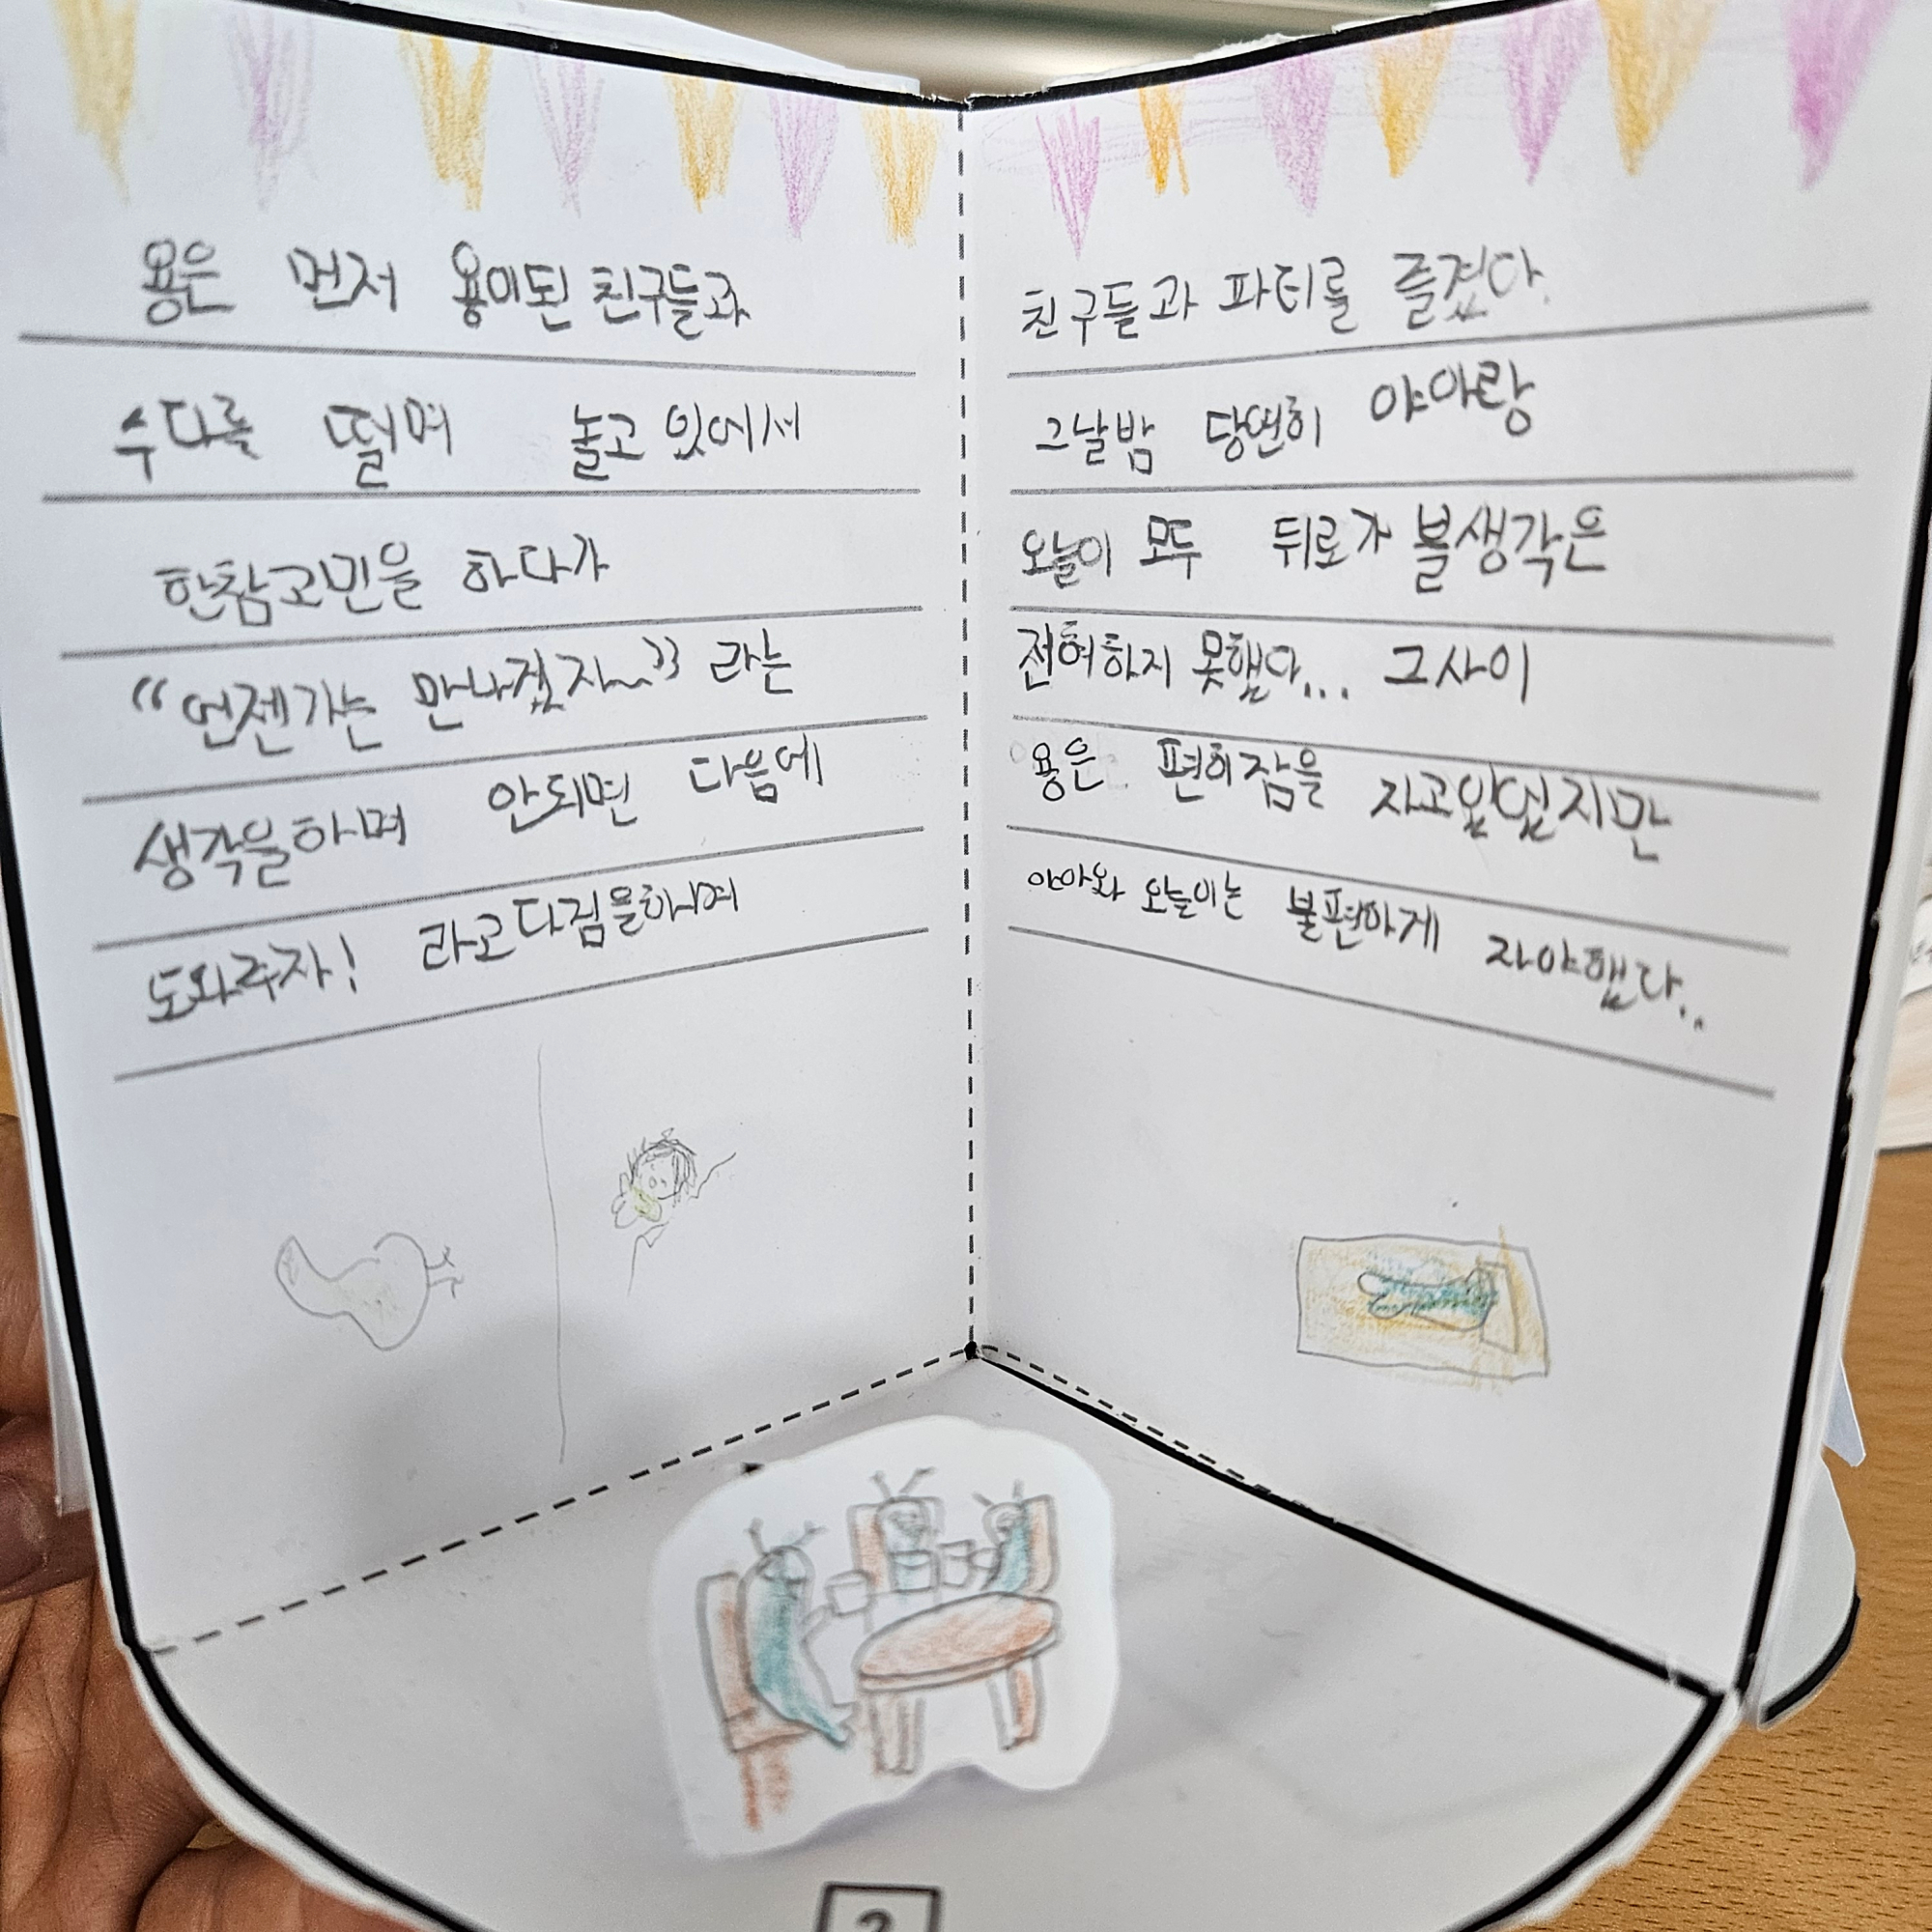 용은 먼저 용이된 친구들과
수다를 떨며 놀고 있에서
한참고민을 하다가
“언젠가는 만나겠지...” 라는
생각을하며 안되면 다음에
도와주자! 라고다짐을하며
친구들과 파티를 즐겼다.
그날밤 당연히 야아랑
오늘이 모두 뒤로가 볼생각은
전혀하지 못했다... 그사이
용은 편히잠을 자고있었지만
야아와 오늘이는 불편하게 자야했다..
2